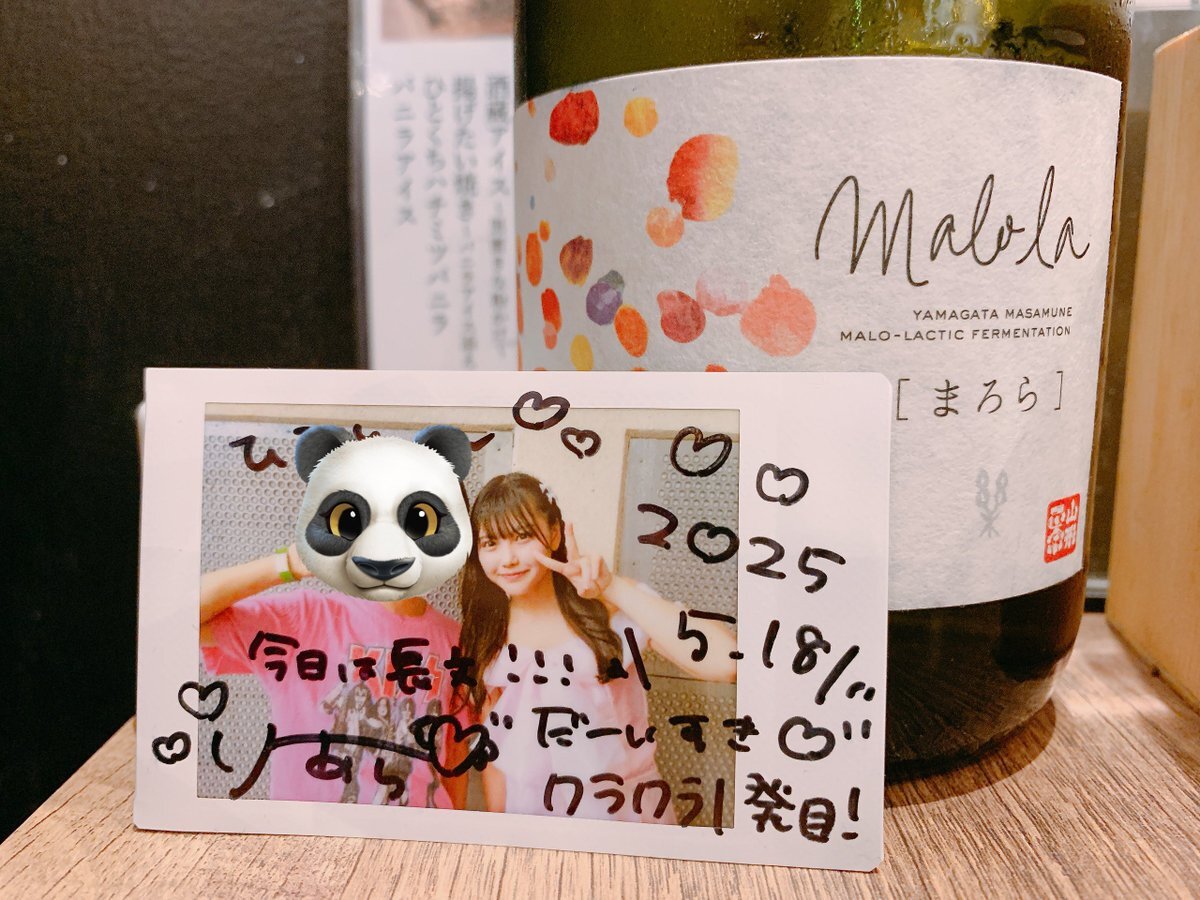 酒蔵アイス
揚げたい焼き
ひとくちハチミツバニラ
バニラアイス
malola
YAMAGATA MASAMUNE
MALO-LACTIC FERMENTATION
[まろら]
2025
5.18
今日は長丈!!!
だーいすき
りあら
ワラワラ1発目!